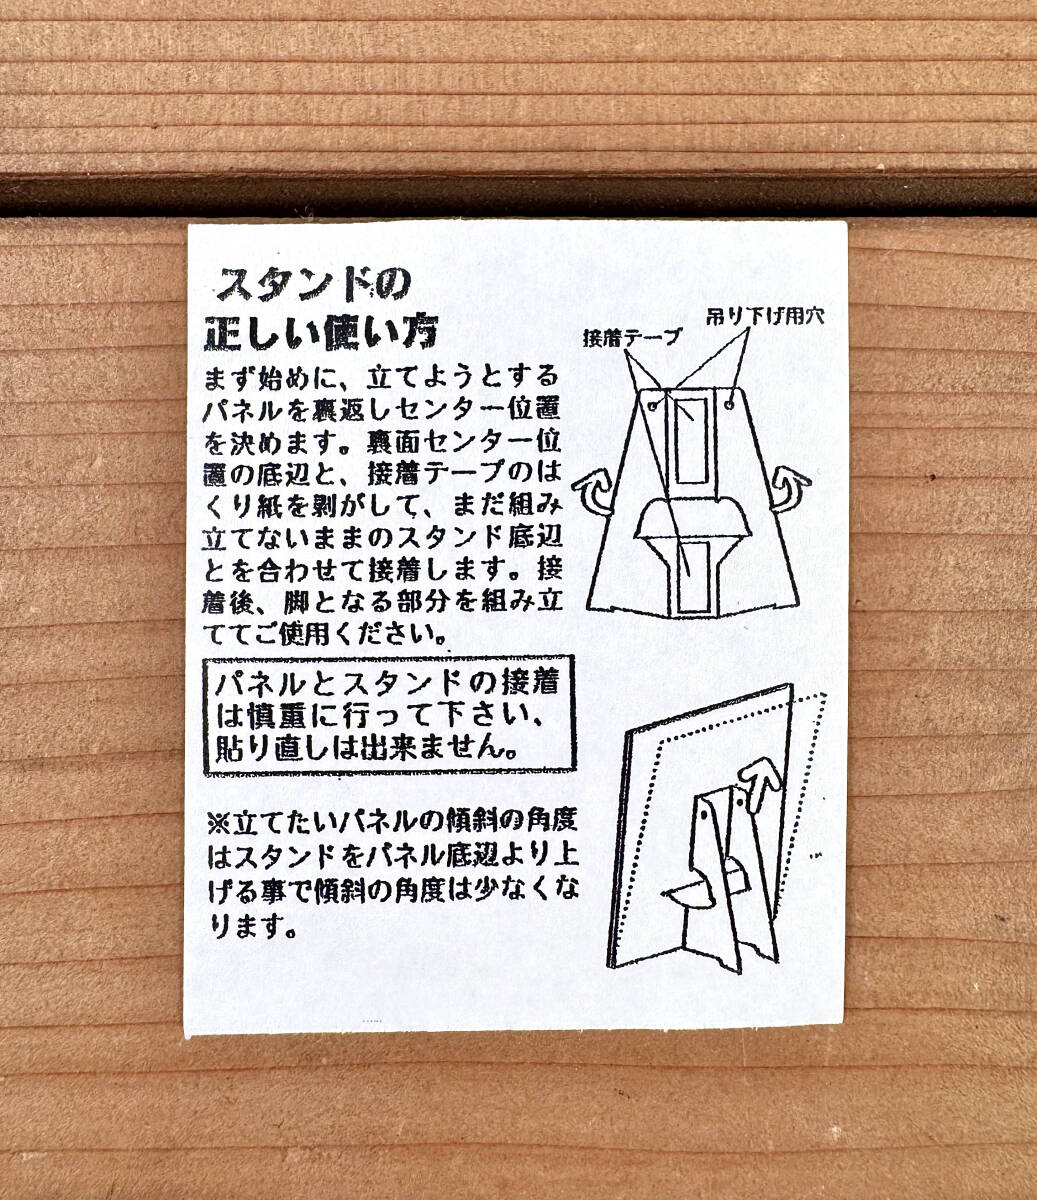 スタンドの
正しい使い方
まず始めに、立てようとする
パネルを裏返しセンター位置
を決めます。裏面センター位
置の底辺と、接着テープのは
くり紙を剥がして、まだ組み
立てないままのスタンド底辺
とを合わせて接着します。接
着後、脚となる部分を組み立
ててご使用ください。
パネルとスタンドの接着
は慎重に行って下さい、
貼り直しは出来ません。
※立てたいパネルの傾斜の角度
はスタンドをパネル底辺より上
げる事で傾斜の角度は少なくな
ります。
接着テープ
吊り下げ用穴